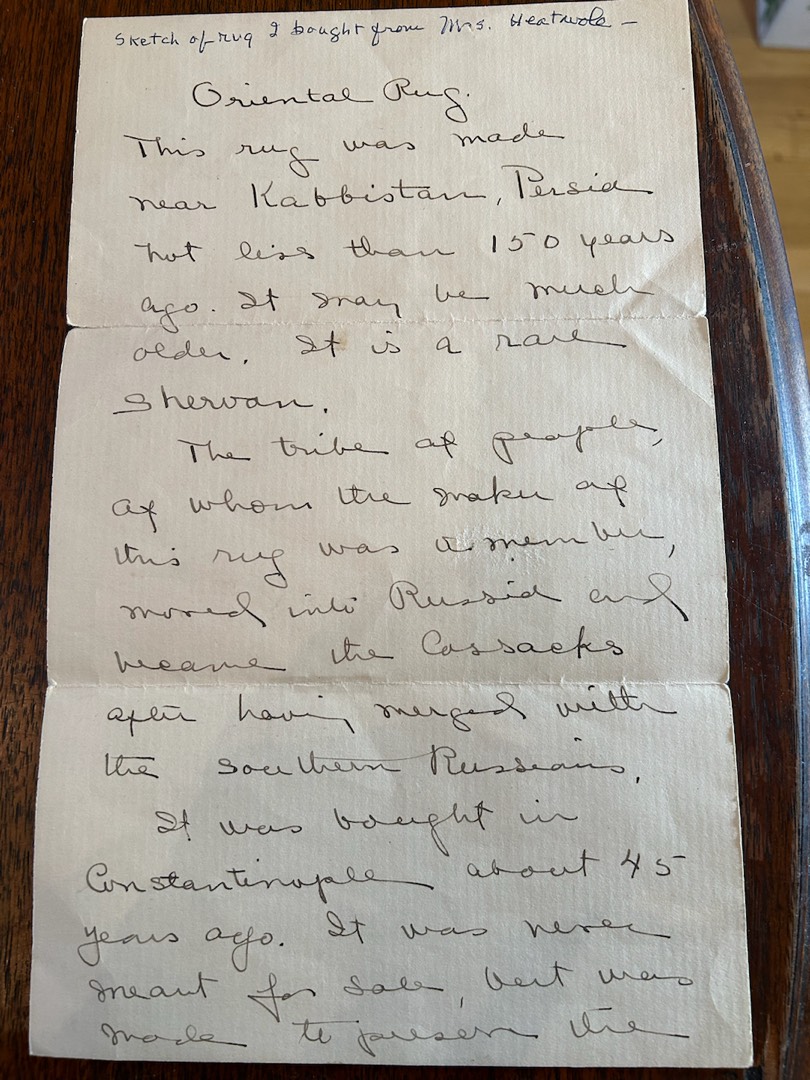 Sketch of rug I bought from Mrs. Heatwole –
Oriental Rug.
This rug was made
near Kabbistan, Persia
not less than 150 years
ago. It may be much
older. It is a rare
Shervan.
The tribe of people,
of whom the maker of
this rug was a member,
moved into Russia and
became the Cossacks
after having merged with
the Southern Russians.
It was bought in
Constantinople about 45
years ago. It was never
meant for sale, but was
made to preserve the